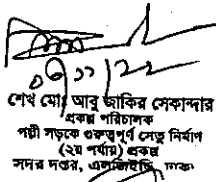 ০৭/১১/২২
শেখ মোঃ আবু জাকির সেকান্দার
প্রকল্প পরিচালক
পল্লী সড়কে গুরুত্বপূর্ণ সেতু নির্মাণ
(২য় পর্যায়) প্রকল্প
সদর দপ্তর, এলজিইডি, ঢাকা